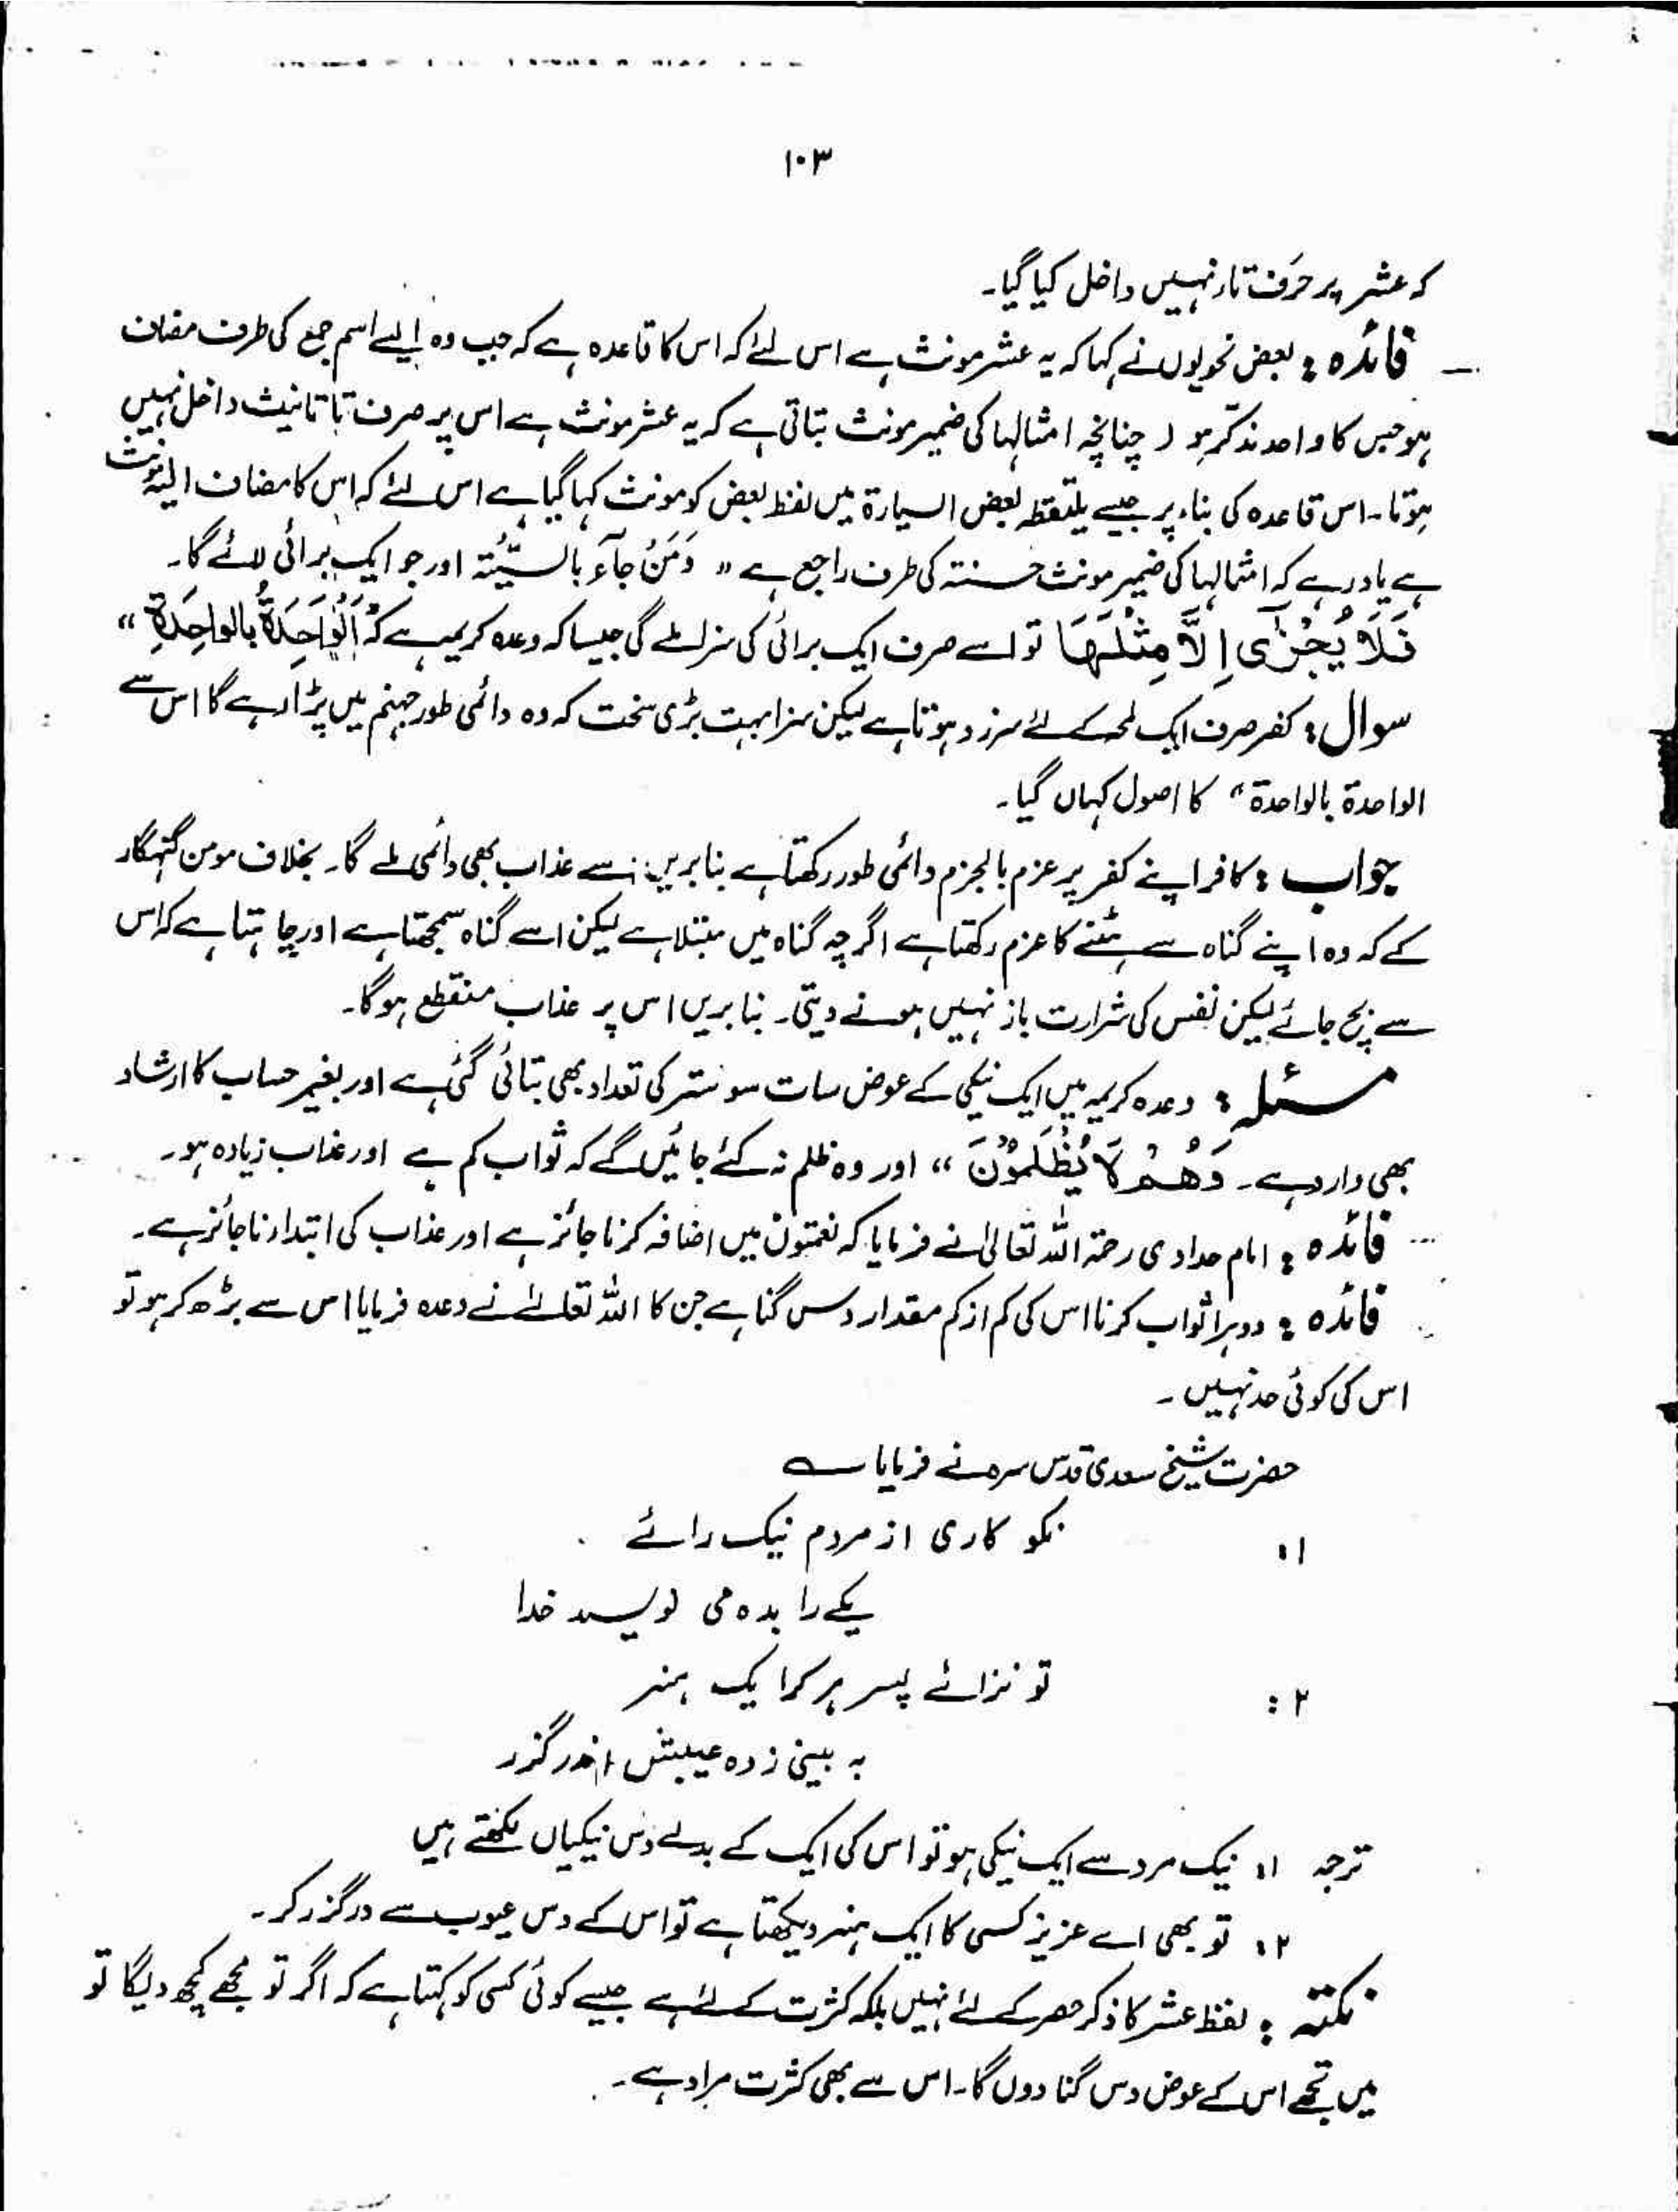 ۱۰۳
کہ عشر پر حرف تار نہیں داخل کیا گیا۔
فائدہ : بعض نحویوں نے کہا کہ یہ عشر مونث ہے اس لئے کہ اس کا قاعدہ ہے کہ جب وہ ایسے اسم جمع کی طرف مضاف
ہو جس کا واحد مذکر ہو ( چنانچہ امثالہا کی ضمیر مونث بتاتی ہے کہ یہ عشر مونث ہے اس پر صرف تا تانیث داخل نہیں
ہوتا۔ اس قاعدہ کی بناء پر جیسے یلتقطہ بعض السیارۃ میں لفظ بعض کو مونث کہا گیا ہے اس لئے کہ اس کا مضاف الیہ مونث
ہے یاد رہے کہ امثالہا کی ضمیر مونث حسنتہ کی طرف راجع ہے " وَمَنْ جَآءَ بالسَّیِّئَۃ اور جو ایک برائی لائے گا۔
فَلَا یُجْزٰٓی اِلَّا مِثْلَهَا تو اسے صرف ایک برائی کی سزا ملے گی جیسا کہ وعدہ کریمہ ہے کہ اَلْوَاحِدَۃُ بالواحِدَۃِ "
سوال : کفر صرف ایک لمحہ کے لئے سرزد ہوتا ہے لیکن سزا بہت بڑی سخت کہ وہ دائمی طور جہنم میں پڑا رہے گا اس سے
الواحدۃ بالواحدۃ " کا اصول کہاں گیا۔
جواب : کافر اپنے کفر پر عزم بالجزم دائمی طور رکھتا ہے بنا بریں اسے عذاب بھی دائمی ملے گا۔ بخلاف مومن گنہگار
کے کہ وہ اپنے گناہ سے ہٹنے کا عزم رکھتا ہے اگرچہ گناہ میں مبتلا ہے لیکن اسے گناہ سمجھتا ہے اور چاہتا ہے کہ اس
سے بچ جائے لیکن نفس کی شرارت باز نہیں ہونے دیتی۔ بنا بریں اس پر عذاب منقطع ہوگا۔
مسئلہ : وعدہ کریمہ میں ایک نیکی کے عوض سات سو ستر کی تعداد بھی بتائی گئی ہے اور بغیر حساب کا ارشاد
بھی وارد ہے۔ وَهُمْ لَا یُظْلَمُوْنَ " اور وہ ظلم نہ کئے جائیں گے کہ ثواب کم ہے اور عذاب زیادہ ہو۔
فائدہ : امام حدادی رحمۃ اللہ تعالیٰ نے فرمایا کہ نعمتوں میں اضافہ کرنا جائز ہے اور عذاب کی ابتدار ناجائز ہے۔
فائدہ : دوہرا ثواب کرنا اس کی کم از کم مقدار دس گنا ہے جن کا اللہ تعالےٰ نے وعدہ فرمایا اس سے بڑھ کر ہو تو
اس کی کوئی حد نہیں۔
حضرت شیخ سعدی قدس سرہ نے فرمایا ؎
۱: نکو کاری از مردم نیک رائے
یکے را بدہ می نویسد خدا
۲: تو نزائے پسر ہر کرا یک ہنر
بہ بینی زدہ عیبش اندر گزر
ترجمہ ۱: نیک مرد سے ایک نیکی ہو تو اس کی ایک کے بدلے دس نیکیاں لکھتے ہیں
۲: تو بھی اے عزیز کسی کا ایک ہنر دیکھتا ہے تو اس کے دس عیوب سے درگزر کر۔
نکتہ : لفظ عشر کا ذکر حصر کے لئے نہیں بلکہ کثرت کے لئے ہے جیسے کوئی کسی کو کہتا ہے کہ اگر تو مجھے کچھ دیگا تو
میں تجھے اس کے عوض دس گنا دوں گا۔ اس سے بھی کثرت مراد ہے۔